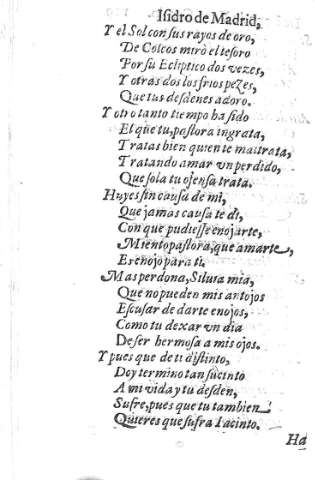 Isidro de Madrid,
Y el Sol con sus rayos de oro,
De Colcos mirò el tesoro
Por su Ecliptico dos vezes,
Y otras dos los frios pezes,
Que tus desdenes adoro.
Y otro tanto tiempo ha sido
El que tu, pastora ingrata,
Tratas bien quien te maltrata,
Tratando amar vn perdido,
Que sola tu ofensa trata.
Huyes sin causa de mi,
Que jamas causa te di,
Con que pudiesse enojarte,
Miento pastora, que amarte,
Es enojo para ti.
Mas perdona, Siluia mia,
Que no pueden mis antojos
Escusar de darte enojos,
Como tu dexar vn dia
De ser hermosa a mis ojos.
Y pues que de ti distinto,
Doy termino tan sucinto
A mi vida y tu desden,
Sufre, pues que tu tambien
Quieres que sufra Iacinto.
Ha